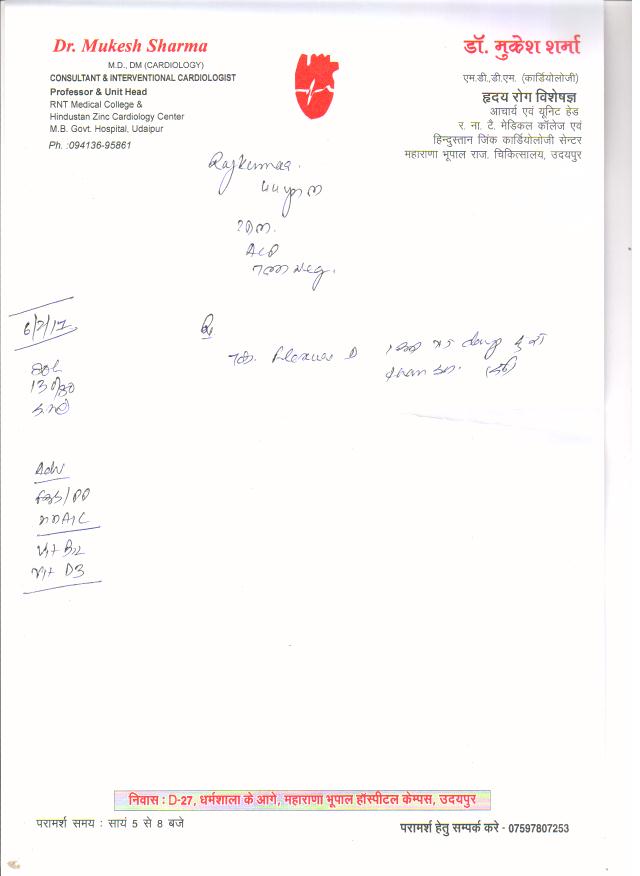 Dr. Mukesh Sharma
M.D., DM (CARDIOLOGY)
CONSULTANT & INTERVENTIONAL CARDIOLOGIST
Professor & Unit Head
RNT Medical College &
Hindustan Zinc Cardiology Center
M.B. Govt. Hospital, Udaipur
Ph. :094136-95861
डॉ. मुकेश शर्मा
एम.डी.,डी.एम. (कार्डियोलोजी)
हृदय रोग विशेषज्ञ
आचार्य एवं यूनिट हेड
र. ना. टै. मेडिकल कॉलेज एवं
हिन्दुस्तान जिंक कार्डियोलोजी सेन्टर
महाराणा भूपाल राज. चिकित्सालय, उदयपुर
Rajkumar
6/2/17
130/80
Adv
FBS/PP
Vit B12
Vit D3
निवास : D-27, धर्मशाला के आगे, महाराणा भूपाल हॉस्पीटल केम्पस, उदयपुर
परामर्श समय : सायं 5 से 8 बजे
परामर्श हेतु सम्पर्क करे - 07597807253